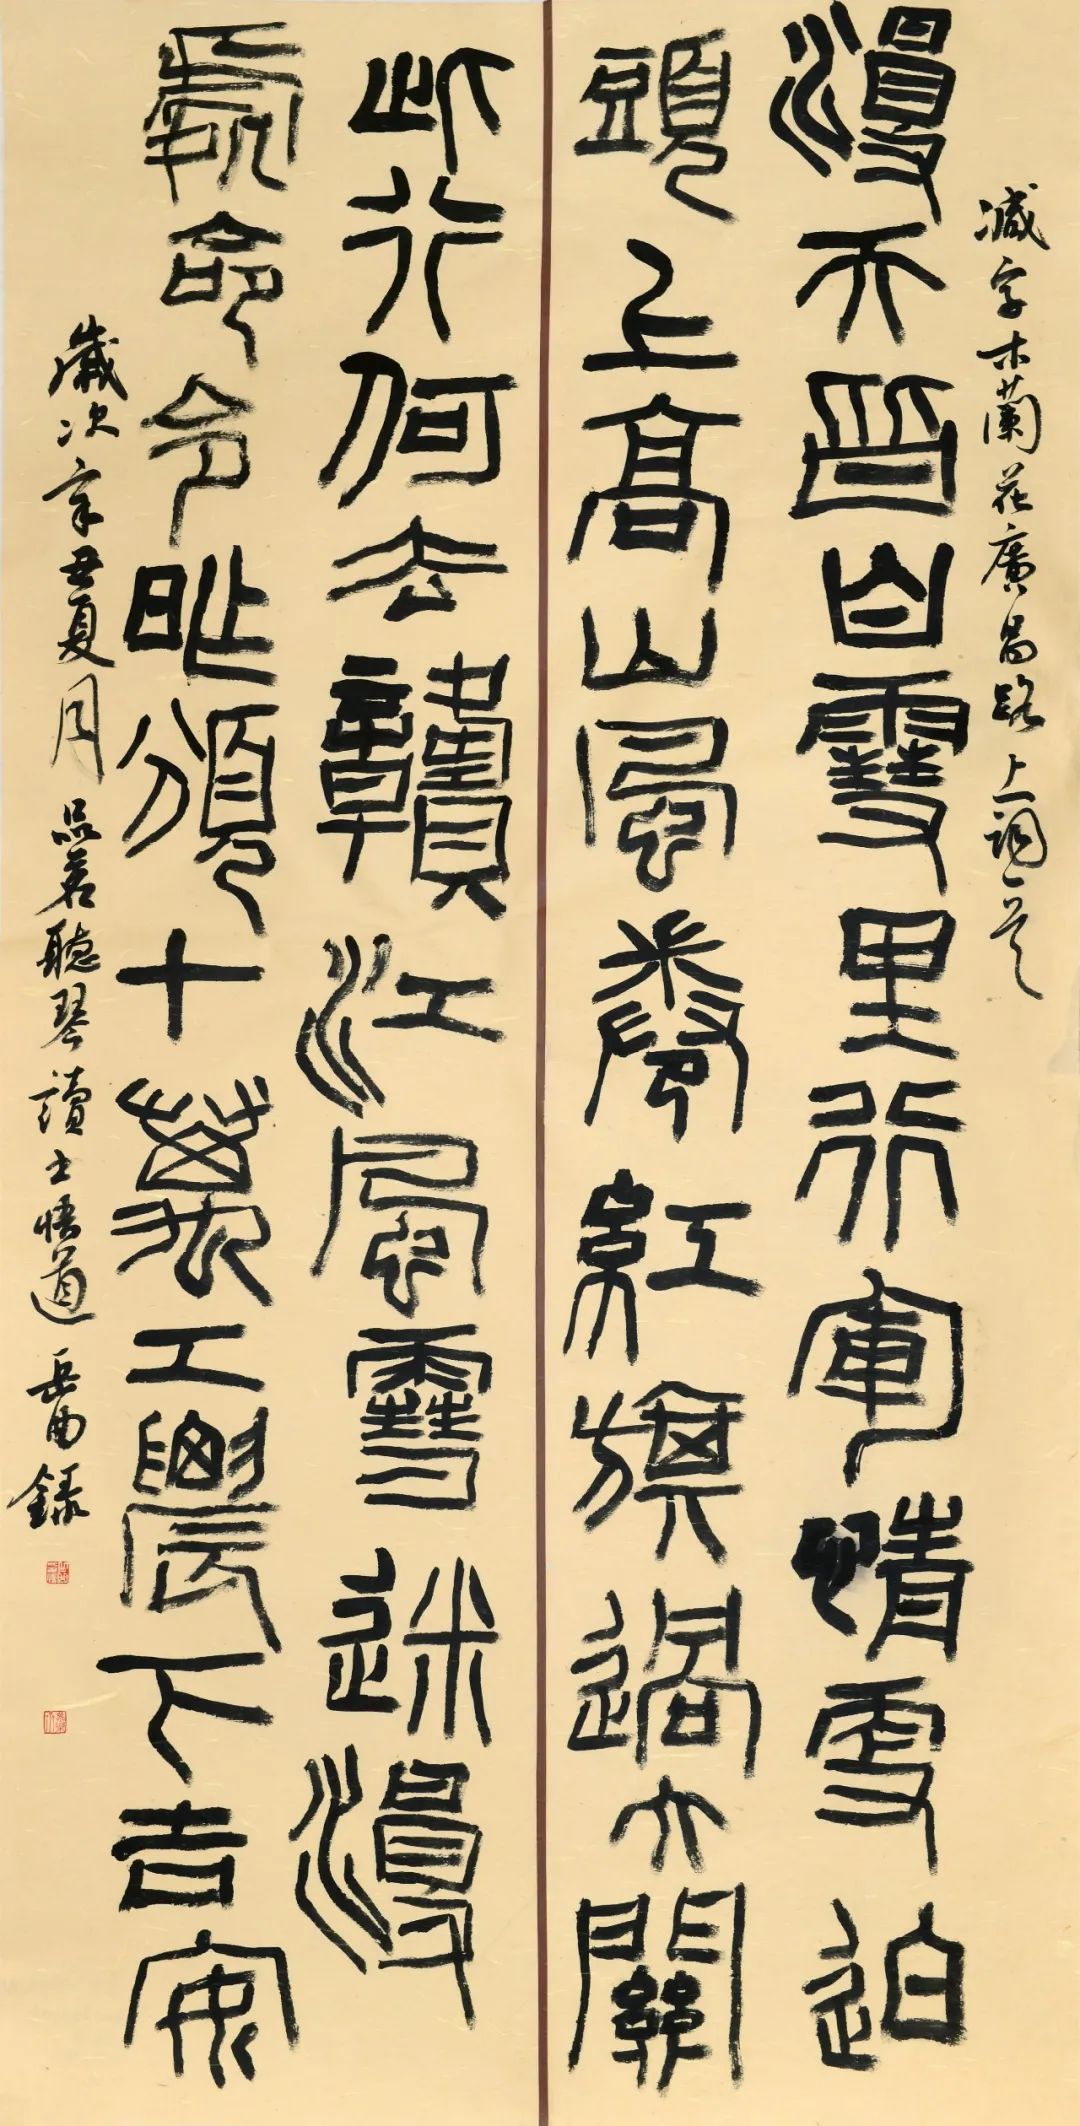 減字木蘭花廣昌路上詞一首
漫天皆白雪里行軍情更迫
頭上高山風卷紅旗過大關
此行何去贛江風雪迷漫
處命令昨頒十萬工農下吉安
歲次辛丑夏月品茗聽琴讀書悟道岳錄